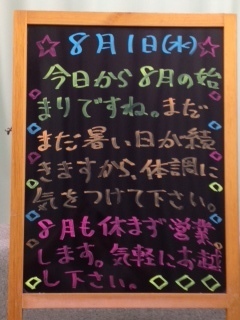 ☆8月1日(水)☆
今日から8月の始
まりですね。まだ
まだ暑い日が続
きますから、体調に
気をつけて下さい。
8月も休まず営業
します。気軽にお越
し下さい。